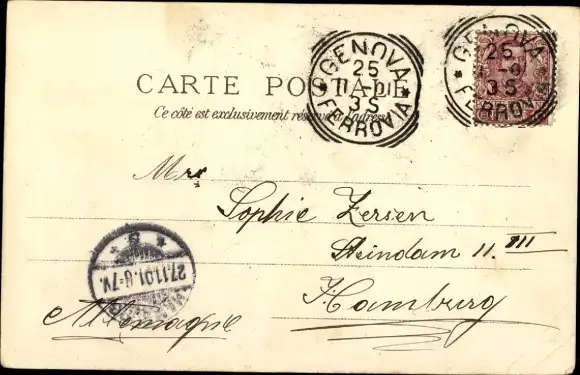 GENOVA
25
11-01
3S
FERROVIA
GENOVA
25
3S
FERROVIA
CARTE POSTALE
Ce côté est exclusivement réservé à l'adresse
Mrs
Sophie Zersen
Steindam 11. III
Hamburg
Allemagne
27.11.01. 6-7V.